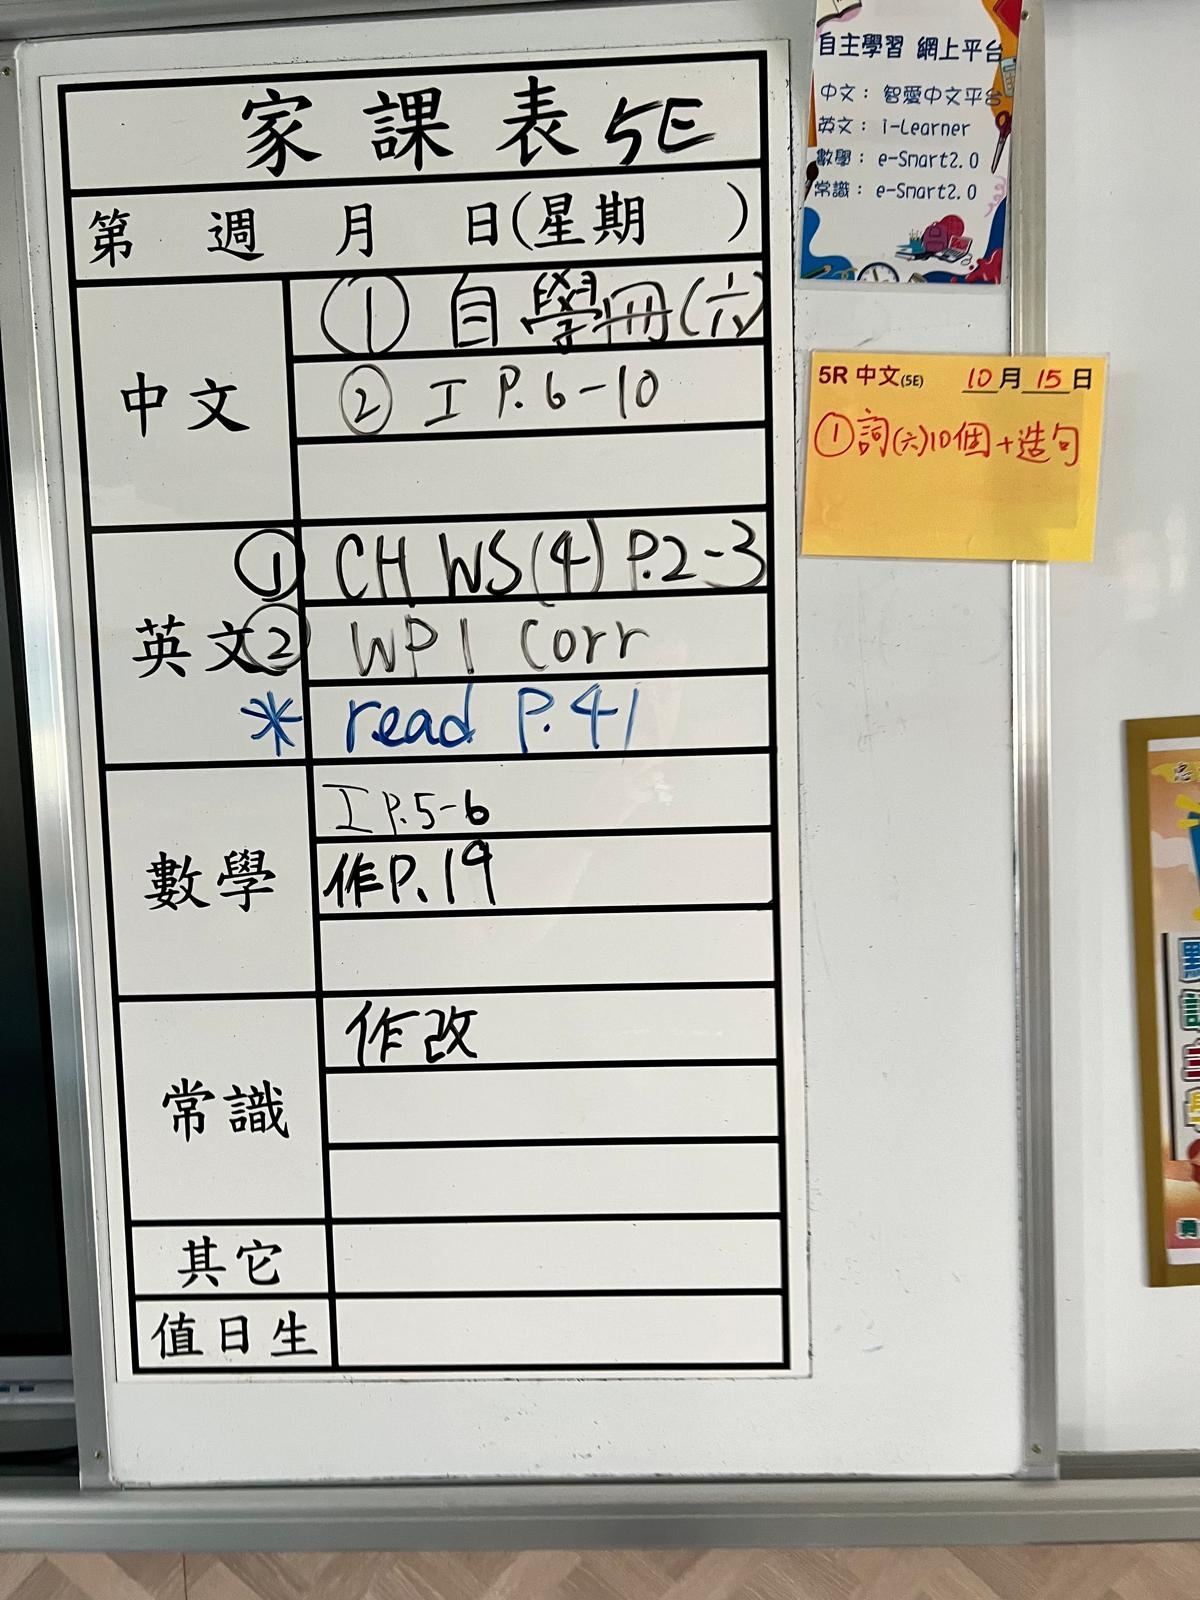 家課表 5E
第 週 月 日(星期 )
中文
① 自學冊(六)
② I P.6-10
英文
① CH WS(4) P.2-3
② WP1 Corr
* read P.41
數學
I P.5-6
作P.19
常識
作改
其它
值日生
自主學習 網上平台
中文： 智愛中文平台
英文： i-Learner
數學： e-Smart2.0
常識： e-Smart2.0
5R 中文(5E) 10月15日
①詞(六)10個+造句